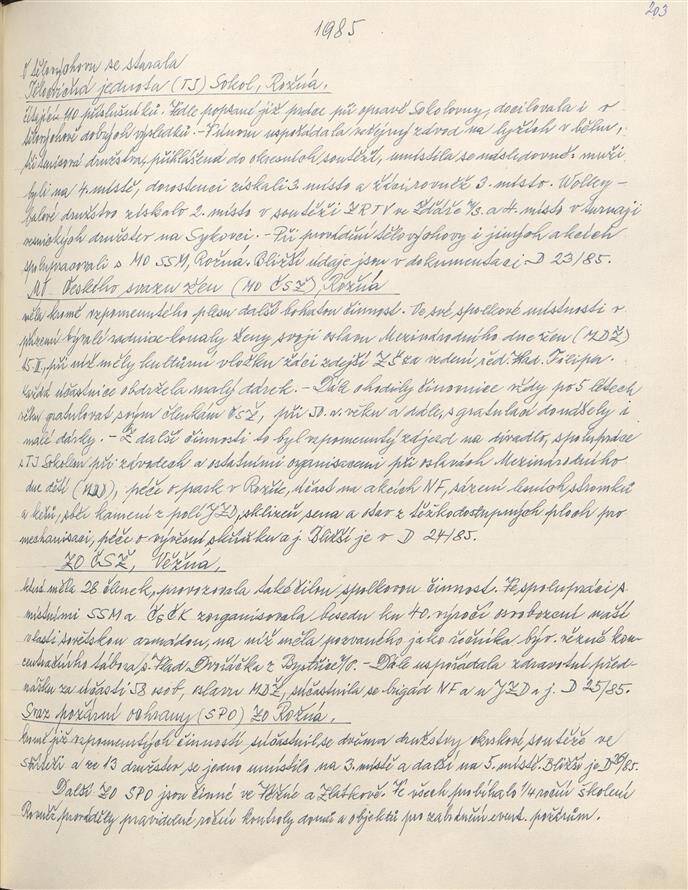 203
1985
O tělovýchovu se starala
Tělovýchovná jednota (TJ) Sokol, Rožná,
čítající 110 příslušníků. Vedle popsané již práce při opravě Sokolovny, docilovala i v
tělovýchově dobrých výsledků. - V únoru uspořádala veřejný závod na lyžích v běhu,
tři tenisová družstva, přihlášená do okresních soutěží, umístila se následovně: muži
byli na 4. místě, dorostenci získali 3. místo a žáci rovněž 3. místo. Volley-
balové družstvo získalo 2. místo v soutěži ZRTV ve Žďáře n/S. a 4. místo v turnaji
vesnických družstev na Sykovci. - Při provádění tělovýchovy i jiných akcích
spolupracovali s MO SSM, Rožná. Bližší údaje jsou v dokumentaci D 23/85.
MO Českého svazu žen (MO ČSŽ), Rožná
měla kromě vzpomenutého plesu další bohatou činnost. Ve své spolkové místnosti v
přízemí bývalé radnice konaly ženy svoji oslavu Mezinárodního dne žen (MDŽ)
při níž měly kulturní vložku žáci zdejší ZŠ za vedení řed. Vlad. Filipa.
Každá účastnice obdržela malý dárek. - Dále chodily činovnice vždy po 5 letech
věku gratulovat svým členkám ČSŽ, při 50. r. věku a dále, s gratulací donášely i
malé dárky. - Z další činnosti to byl vzpomenutý zájezd na divadlo, spolupráce
s TJ Sokolem při závodech a ostatními organisacemi při oslavách Mezinárodního
dne dětí (MDD), péče o park v Rožné, účast na akcích NF, sázení lesních stromků
a keřů, sběr kamení z polí JZD, sklizeň sena a otav z těžkodostupných ploch pro
mechanisaci, péče o vývěsní skříňku a j. Bližší je v D 24/85.
ZO ČSŽ, Věžná,
která měla 28 členek, provozovala také čilou spolkovou činnost. Ve spolupráci s
místními SSM a ČsČK zorganisovala besedu ku 40. výročí osvobození naší
vlasti sovětskou armádou, na níž měla pozvaného jako řečníka býv. vězně kon-
centračního tábora s. Vlad. Dvořáčka z Bystřice n/P. - Dále uspořádala zdravotní před-
nášku za účasti 58 osob, oslavu MDŽ, súčastnila se brigád NF a u JZD a j. D 25/85.
Svaz požární ochrany (SPO) ZO Rožná,
kromě již vzpomenutých činností súčastnil se dvěma družstvy okrskové soutěže ve
a ze 13 družstev se jedno umístilo na 3. místě a další na 5. místě. Bližší je D 26/85.
Další ZO SPO jsou činné ve Věžné a Zlatkově. Ve všech probíhalo 1/4 roční školení
Rovněž prováděly pravidelné, roční kontroly domů a objektů pro zabránění event. požárům.